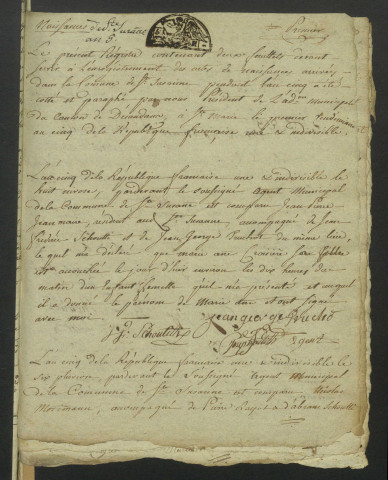 Naissances de Ste Suzanne
an 5
Premier
Le présent Registre contenant deux feuillets devant
servir à l'enregistrement des acts de naissances arrivés
dans la Commune de Ste Suzanne pendant l'an cinq a été
cotté et paraphé par nous Président de l'adm. Municipal
du Canton de Désandans, à Ste Marie le premier Vendemiaire
an cinq de la République française une et indivisible.
L'an cinq de la République francaise une et indivisible le
huit nivose, pardevant le soussigné agent Municipal
de la Commune de Ste Suzanne est comparu Jean Pierre
Jeanmaire, résident aux Ste Suzanne accompagné de Jean
et de Jean George du même lieu,
le quel m'a déclaré que marie
est accouchée le jour d'hier environ les dix heures du
matin d'un Enfant femelle qu'il m'a présenté et auquel
il a donné le prenom de Marie et ont signé
avec moi
Jean george
agent
L'an cinq de la République francaise une et indivisible le
six pluviose, pardevant le Soussigné agent Municipal
de la Commune de Ste Suzanne est comparu Nicolas
accompagné de Pierre et d'abram